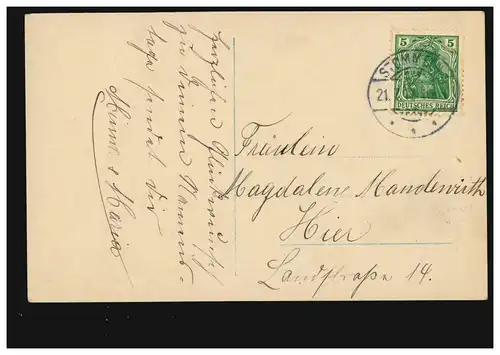 Herzlichen Glückwunsch
zu deinem Namens-
tage sendet dir
Heinr. & Maria
5 5
DEUTSCHES REICH
STOMMELN
21.
Fräulein
Magdalene Manderwirth
Hier
Landstraße 14.